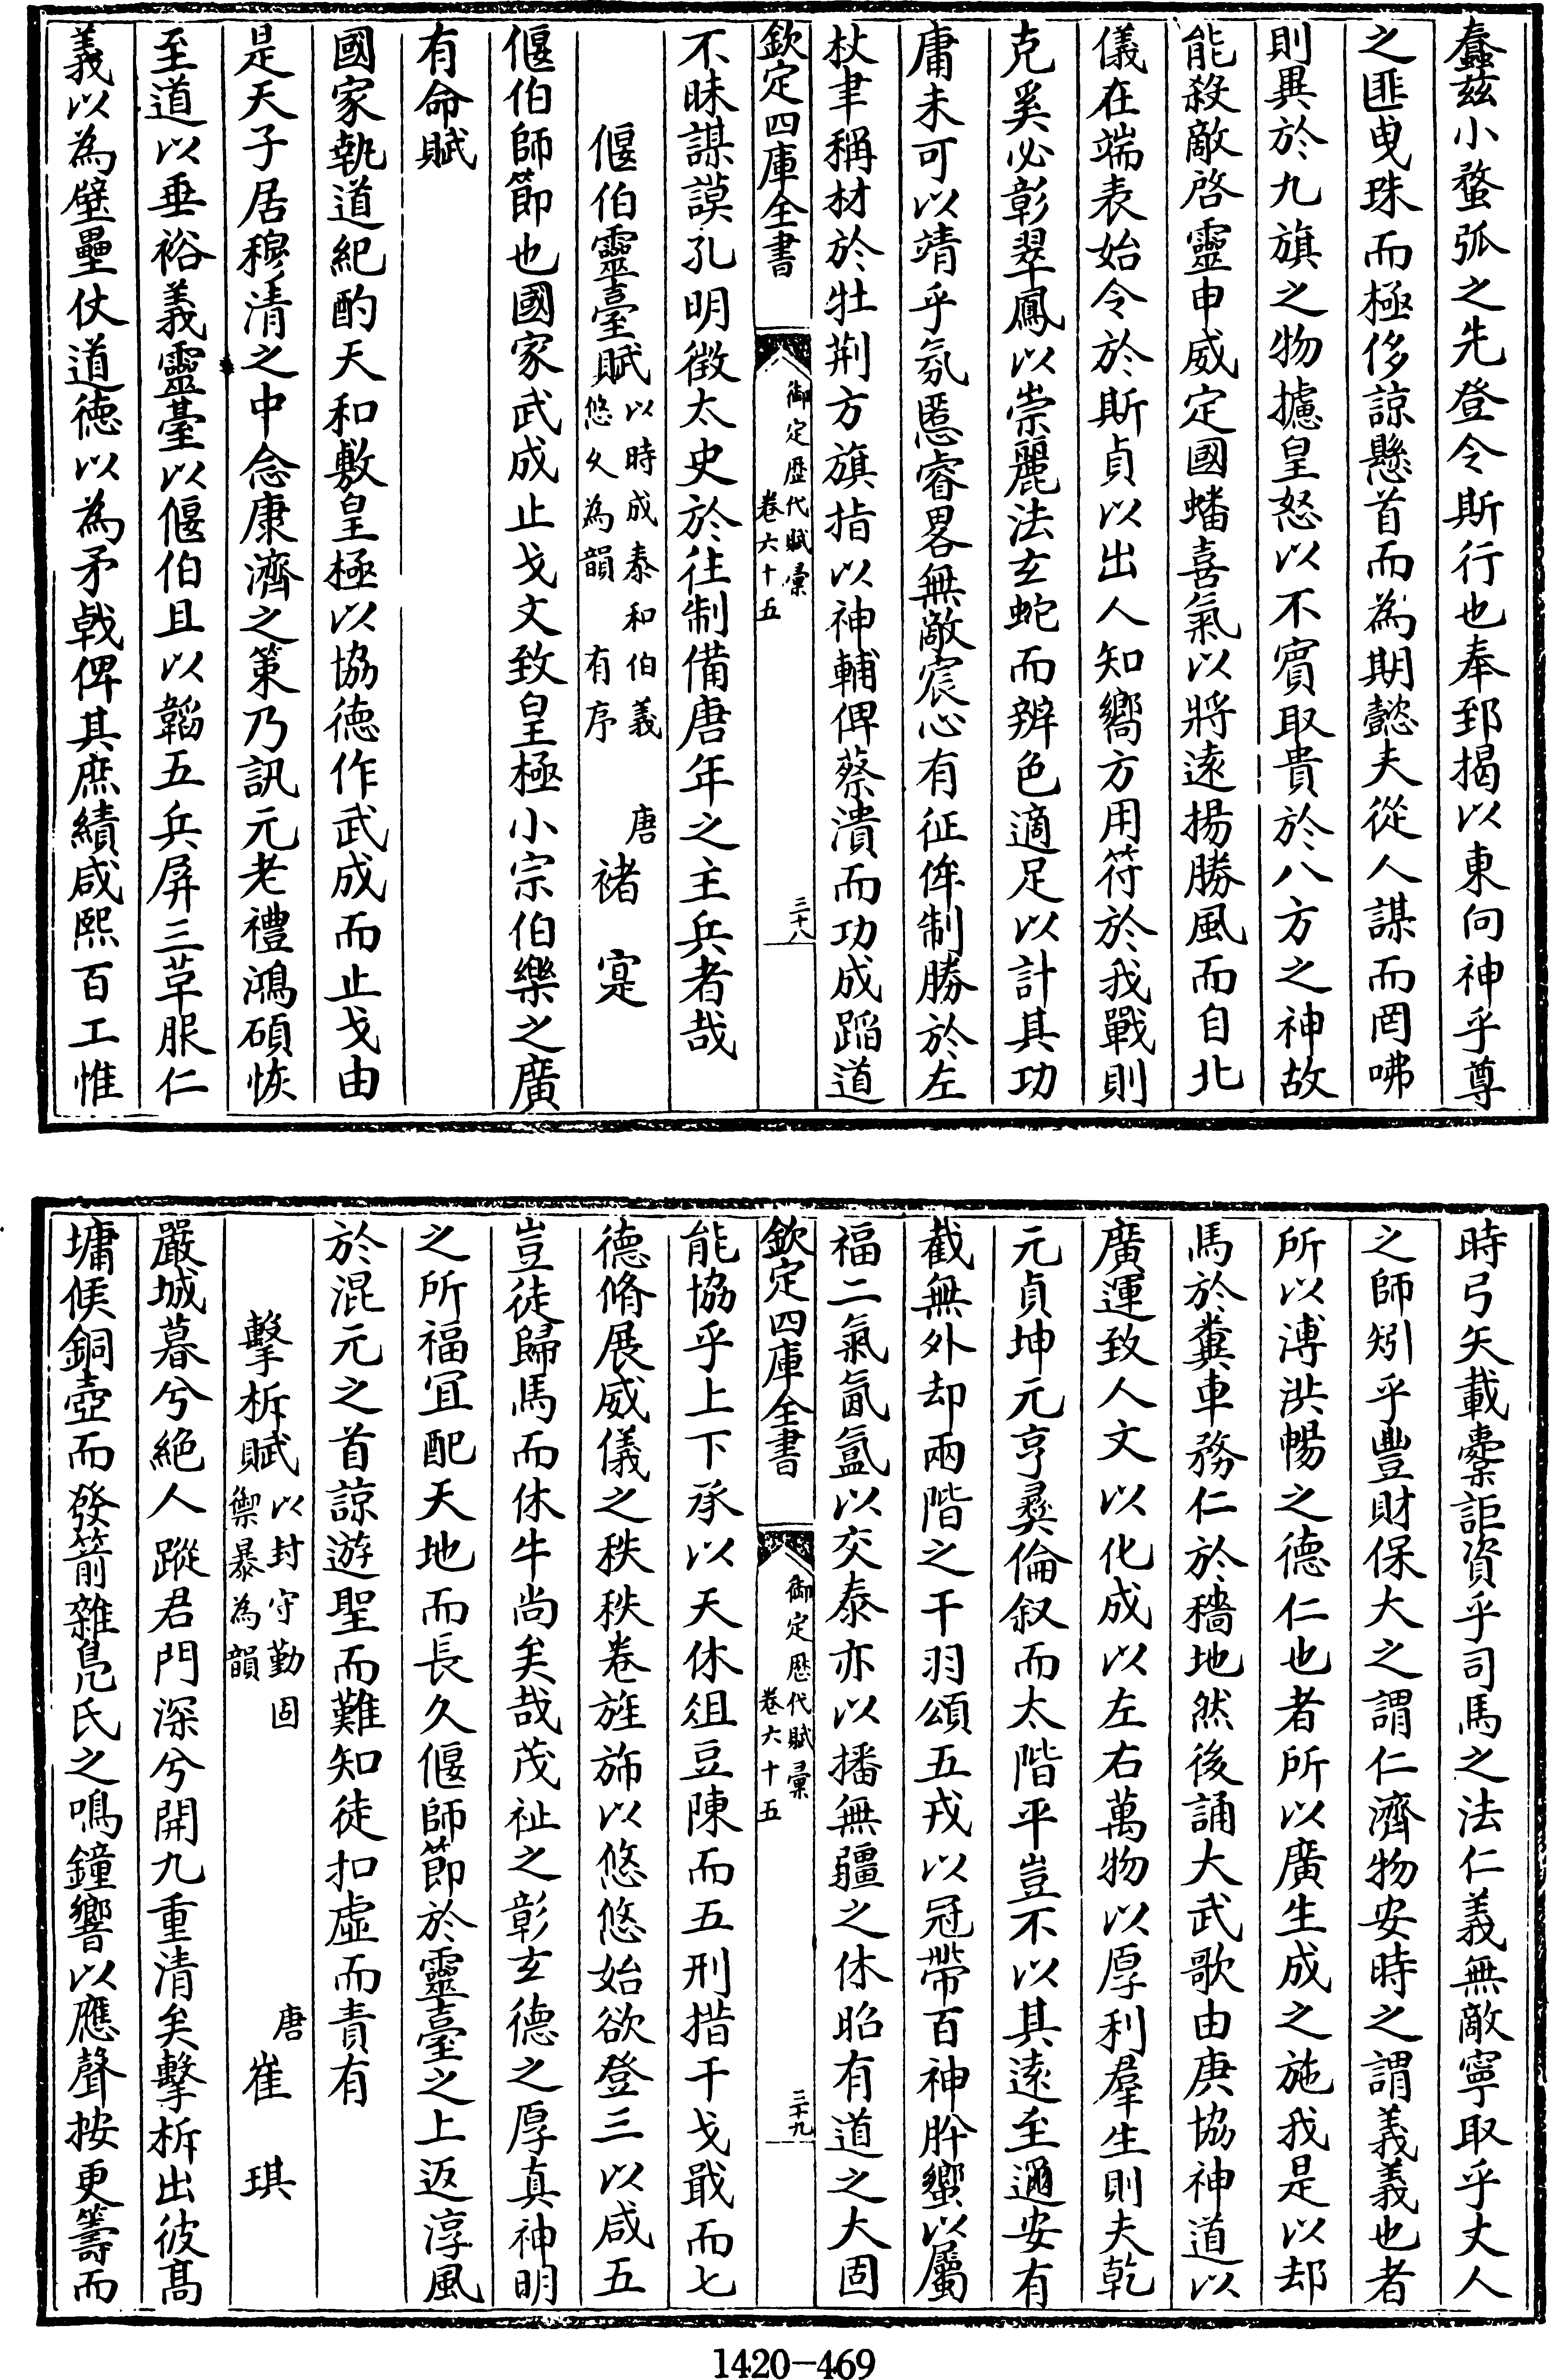 蠢茲小蝥弧之先登令斯行也奉郅揭以東向神乎尊
之匪曳珠而極侈諒懸首而為期懿夫從人謀而罔咈
則異於九旗之物攄皇怒以不賓取貴於八方之神故
能殺敵啓靈申威定國蟠喜氣以將遠揚勝風而自北
儀在端表始令於斯貞以出人知嚮方用符於我戰則
克奚必彰翠鳳以崇麗法玄蛇而辨色適足以計其功
庸未可以靖乎氛慝睿畧無敵宸心有征侔制勝於左
杖聿稱材於牡荆方旗指以神輔俾蔡潰而功成蹈道
欽定四庫全書
御定歴代賦彙
卷六十五
三十八
不昧謀謨孔明徴太史於往制備唐年之主兵者哉
偃伯靈臺賦以時成泰和伯義悠久為韻 有序 唐 褚 寔
偃伯師節也國家武成止戈文致皇極小宗伯樂之廣
有命賦
國家執道紀酌天和敷皇極以協徳作武成而止戈由
是天子居穆清之中念康濟之策乃訊元老禮鴻碩恢
至道以垂裕義靈臺以偃伯且以韜五兵屏三革服仁
義以為壁壘仗道徳以為矛戟俾其庶績咸熙百工惟
時弓矢載櫜詎資乎司馬之法仁義無敵寧取乎丈人
之師矧乎豐財保大之謂仁濟物安時之謂義義也者
所以溥洪暢之德仁也者所以廣生成之施我是以却
馬於糞車務仁於穡地然後誦大武歌由庚協神道以
廣運致人文以化成以左右萬物以厚利羣生則夫乾
元貞坤元亨彛倫叙而太階平豈不以其遠至邇安有
截無外却兩階之干羽頌五戎以冠帶百神肸蠁以屬
福二氣氤氳以交泰亦以播無疆之休昭有道之大固
欽定四庫全書
御定歴代賦彙
卷六十五
三十九
能協乎上下承以天休俎豆陳而五刑措干戈戢而七
德脩展威儀之秩秩卷旌斾以悠悠始欲登三以咸五
豈徒歸馬而休牛尚矣哉茂祉之彰玄德之厚真神明
之所福冝配天地而長久偃師節於靈臺之上返淳風
於混元之首諒遊聖而難知徒扣虛而責有
擊柝賦以封守勤固禦暴為韻 唐 崔 琪
嚴城暮兮絶人蹤君門深兮開九重清矣擊柝出彼髙
墉候銅壺而發箭雜鳬氏之鳴鐘響以應聲按更籌而
1420-469